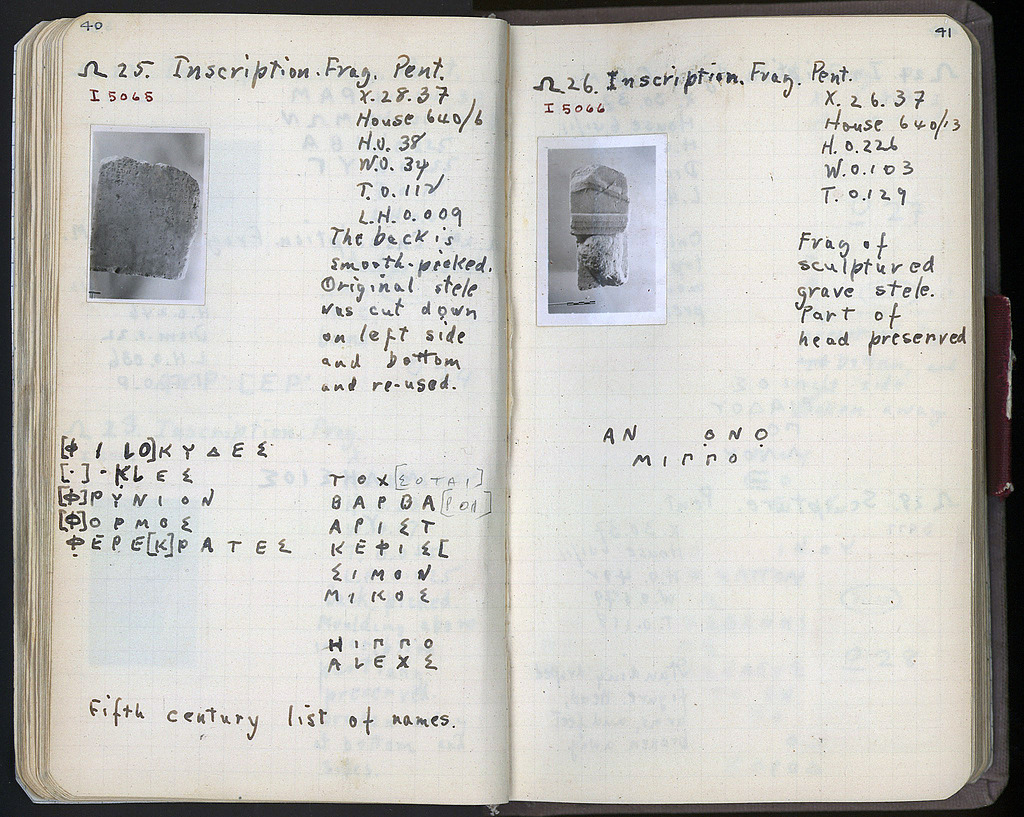 40
Ω 25. Inscription. Frag. Pent.
I 5065
X. 28. 37
House 640/6
H.0.38
W.0.34
T.0.112
L.H.0.009
The back is
smooth-picked.
Original stele
was cut down
on left side
and bottom
and re-used.
[Φ Ι LΟ]ΚΥΔΕΣ
[·]·ΚLΕΣ
[Φ]ΡΥΝΙΟΝ
[Φ]ΟΡΜΟΣ
ΦΕΡΕ[Κ]ΡΑΤΕΣ
ΤΟΧ[ΣΟΤΑΙ]
ΒΑΡΒΑ[ΡΟΙ]
ΑΡΙΣΤ
ΚΕΦΙΣ[
ΣΙΜΟΝ
ΜΙΚΟΣ
ΗΙΠΠΟ
ΑLΕΧΣ
Fifth century list of names.
41
Ω 26. Inscription. Frag. Pent.
I 5066
X. 26. 37
House 640/13
H.0.226
W.0.103
T.0.129
Frag of
sculptured
grave stele.
Part of
head preserved
ΑΝ ΟΝΟ
ΜΙΠΠΟ